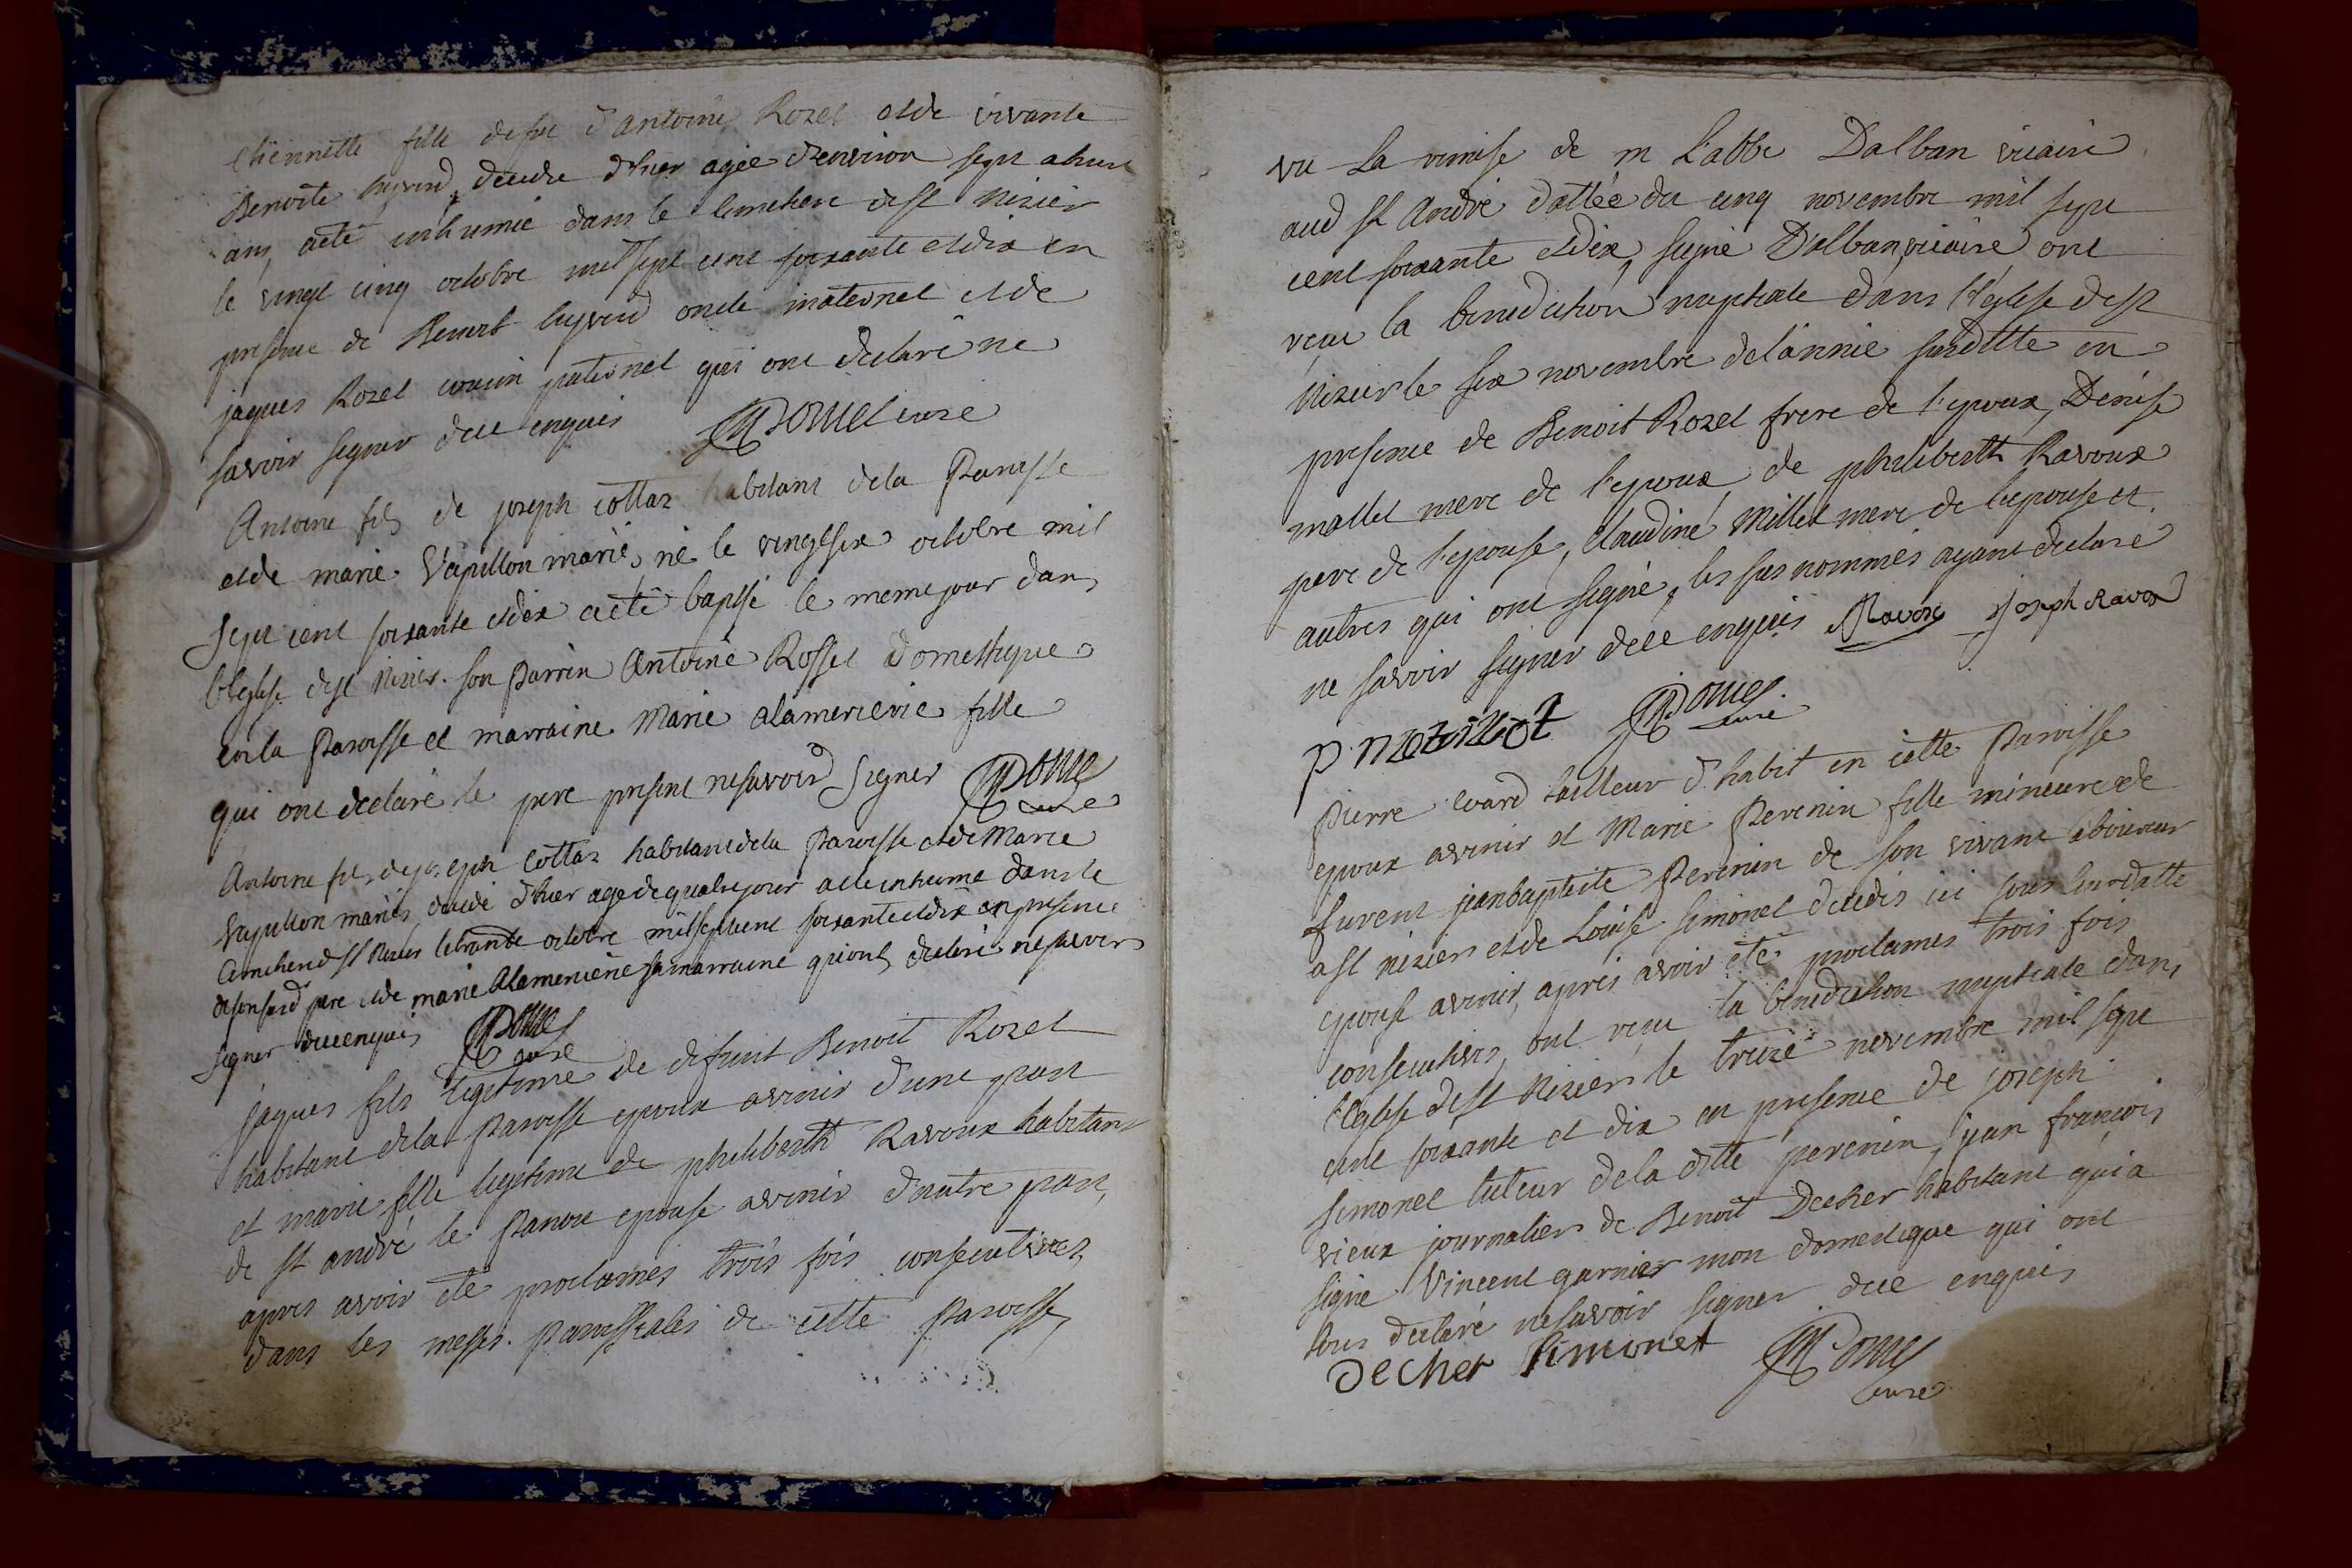 Etiennette fille defut d'antoine Rozet et de vivante
Benoite decedee d'hier agée d'environ sept a huit
ans, aeté inhumée dans le cimetiere de st nizier
le vingt cinq octobre mil sept cent soixante et dix en
presence de Benoit oncle maternel et de
jaques Rozet cousin paternel qui ont declaré ne
savoir signer de ce enquis curé
Antoine fils de joseph cottaz habitant dela Paroisse
et de marie Vapillon mariés, né le vingtsix octobre mil
sept cent soixante et dix aeté baptisé le meme jour dans
l'eglise de st nizier. son parrin Antoine Rosset domestique
en la Paroisse et marraine Marie alamerienie fille
qui ont declaré le pere present ne savoir signer
curé
Antoine fils de joseph cottaz habitant dela Paroisse et de Marie
Vapillon mariés, decedé d'hier agé de quatre jours a eté inhumé dans le
cimetiere d st nizier le trante octobre mil sept cent soixante et dix en presence
de son susd pere et de marie alameniene sa marraine qui ont declaré ne savoir
signer de ce enquis
curé
jaques fils legitime de defunt Benoit Rozet
habitant dela Paroisse epoux avenir d'une part
et marie fille legitime de philiberth Ravoux habitant
de st andré le Panoux epouse avenir d'autre part,
apres avoir eté proclames trois fois consecutives
dans les messes paroissiales de cette Paroisse,
vu la remise de m l'abbé Dalban vicaire
aud st André dattée du cinq novembre mil sept
cent soixante et dix, signé Dalban vicaire ont
reçu la benediction nuptiale dans l'eglise de st
nizier le six novembre de l'année susditte en
presence de Benoit Rozet frere de l'epoux, Denise
mallet mere de l'epoux, de philiberth Ravoux
pere de l'epouse, Claudine Millet mere de l'epouse et
autres qui ont signé, les sus nommés ayant declaré
ne savoir signer de ce enquis Ravox joseph Ravox
curé
Pierre Evard tailleur d'habit en cette Paroisse
epoux avenir et Marie Perenin fille mineure de
furent jeanbaptiste Perenin de son vivant laboureur
a st nizier et de Louise simonet decedés ici sous leur datte
epouse avenir, après avoir eté proclames trois fois
consecutives, ont reçu la benediction nuptiale dans
l'eglise de st nizier le treize novembre mil sept
cent soixante et dix en presence de joseph
simonet tuteur dela ditte perenin, jean françois
vieux journalier de Benoit Decher habitant qui a
signé Vincent garnier mon domestique qui ont
tous declaré ne savoir signer de ce enquis
decher simonet
curé